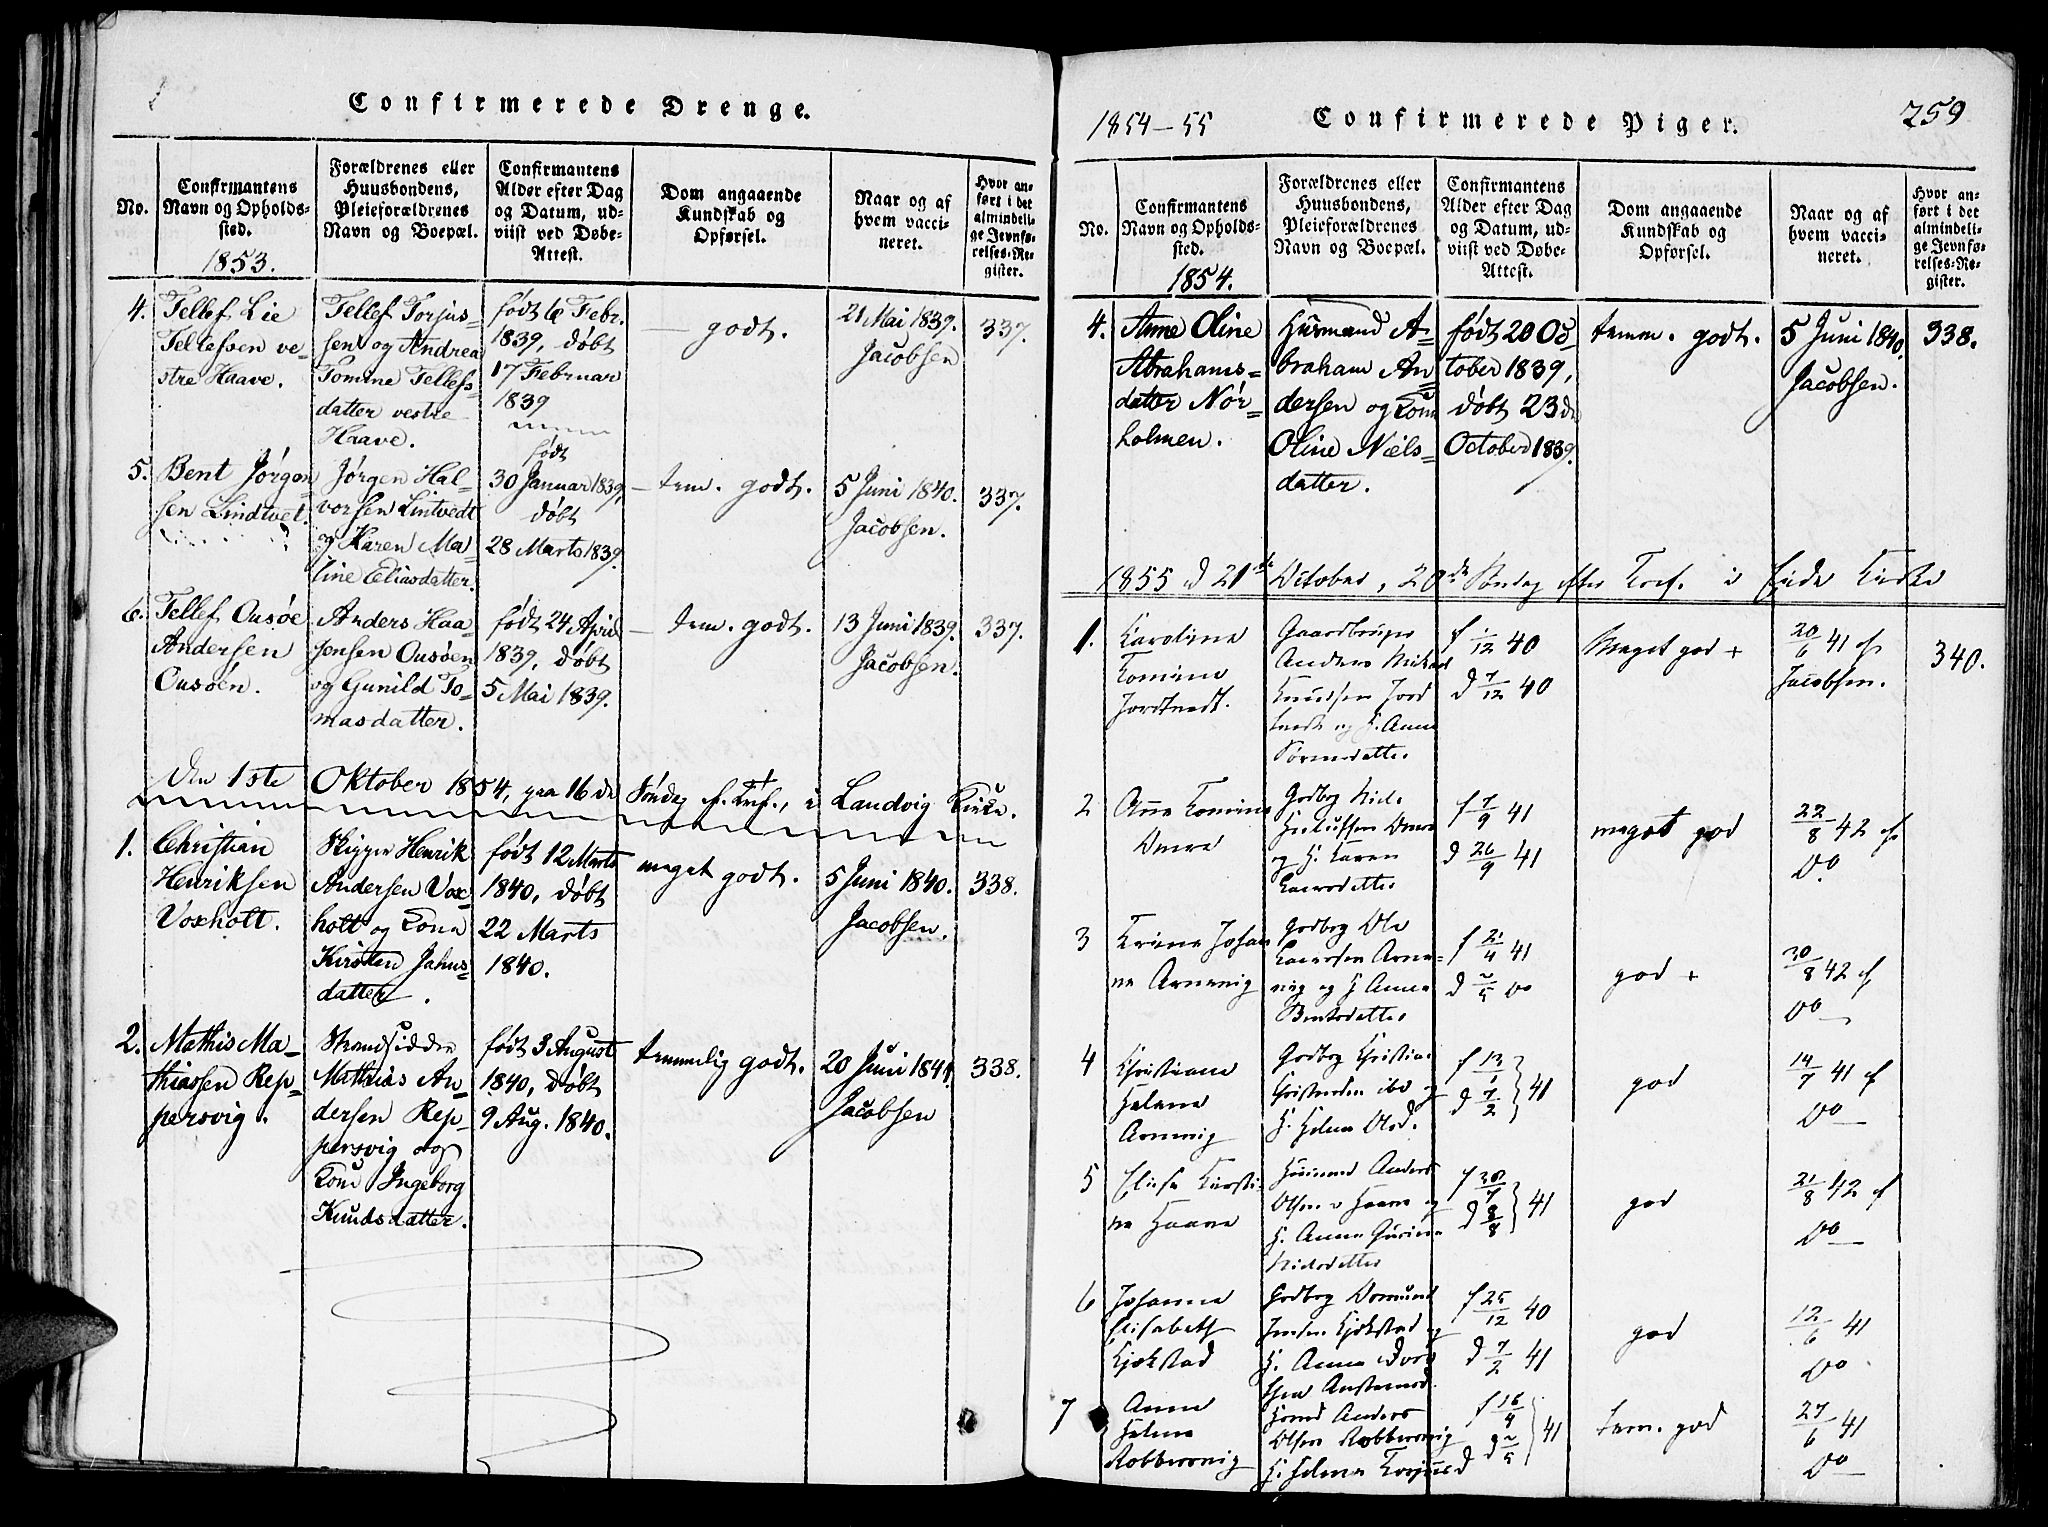 Confirmerede Drenge.
No.
Confirmantens
Navn og Opholds-
sted.
1853.
Forældrenes eller
Huusbondens,
Pleieforældrenes
Navn og Boepæl.
Confirmantens
Alder efter Dag
og Datum, ud-
viist ved Døbe-
Attest.
Dom angaaende
Kundskab og
Opførsel.
Naar og af
hvem vacci-
neret.
Hvor an-
ført i det
almindeli-
ge Jevnfø-
relses-Re-
gister.
4.
Tellef Lie
Tellefsen ve-
stre Haave.
Tellef Torjus-
sen og Andrea
Tomine Tellefs-
datter vestre
Haave.
født 6 Febr.
1839, døbt
17 Februar
1839
— godt.
21 Mai 1839.
Jacobsen
337.
5.
Bent Jørgen-
sen Lindtvet.
Jørgen Hal-
vorsen Lintvedt
og Karen Ma-
line Eliasdatter.
født
30 Januar 1839,
døbt
28 Marts 1839.
— tem. godt.
5 Juni 1840.
Jacobsen.
337.
6.
Tellef Ousøe
Andersen
Ousøen.
Anders Haa-
gensen Ousøen
og Gunild To-
masdatter.
født 24 April
1839, døbt
5 Mai 1839.
— tem. godt.
13 Juni 1839.
Jacobsen.
337.
Den 1ste Oktober 1854, paa 16de Søndag f. Tref., i Landvig Kirke.
1.
Christian
Henriksen
Voxholt.
Skipper Henrik
Andersen Vox-
holt og Kone
Kirsten Jahns-
datter.
født 12 Marts
1840, døbt
22 Marts
1840.
meget godt.
5 Juni 1840.
Jacobsen.
338.
2.
Mathis Ma-
thiassen Rep-
persvig.
Strandsidder
Mathias An-
dersen Rep-
persvig og
Kone Ingeborg
Knudsdatter.
født 3 August
1840, døbt
9 Aug. 1840.
temmelig godt.
20 Juni 1841.
Jacobsen
338.
1854–55
Confirmerede Piger.
259
No.
Confirmantens
Navn og Opholds-
sted.
1854.
Forældrenes eller
Huusbondens,
Pleieforældrenes
Navn og Boepæl.
Confirmantens
Alder efter Dag
og Datum, ud-
viist ved Døbe-
Attest.
Dom angaaende
Kundskab og
Opførsel.
Naar og af
hvem vacci-
neret.
Hvor an-
ført i det
almindeli-
ge Jevnfø-
relses-Re-
gister.
4.
Anne Oline
Abrahams-
datter Nør-
holmen.
Husmand A-
braham An-
dersen og Kone
Oline Niels-
datter.
født 20 Oc-
tober 1839,
døbt 23de
October 1839.
temm. godt.
5 Juni 1840.
Jacobsen.
338.
1855 d 21de October, 20de Søndag efter Tref. i Eide Kirke
1.
Karoline
Tomine
Jortveit.
Gaardbruger
Anders Michael
Knudsen Jort
tveit og H. Anne
f 1/12 40
d 7/12 40
Meget god +
20/6 41 af
Jacobsen.
340.
2
Anne Tomine
Omre
Gdbrg Niels
Omre
og H. Karen
Larsdatter
f 7/9 41
d 26/9 41
meget god
22/8 42 af
Do
3
Trine Johan
ne Arnevig
Gdbrg Ole
Larsen Arne-
vig og H Anne
Bentsdatter
f 21/4 41
d 2/5 Do
god +
30/8 42 af
Do
4
Christiane
Helene
Arnevig
Gdbrg Christian
Christensen ibd og
H. Helene Olsd.
f 13/1
d 7/2 } 41
god
14/7 41 af
Do
5
Elise Kirsti-
ne Haave
Huusmd Anders
Olsen v Haave og
H. Anne Gurine
Nielsdatter
f 30/7
d 8/8 } 41
god
21/8 42 af
Do
6
Johanne
Elisabeth
Kjekstad
Gdbrg Osmund
Jensen Kjekstad og
H. Anne Dor
thea Austensd.
f 25/12 40
d 7/2 41
god
12/6 41
Do
7
Anne
Helene
Robbersvig
Huusmd Anders
Olsen Robbersvig
H. Helene Torjusd
f 16/4
d 2/5 } 41
tem. god
27/6 41
Do